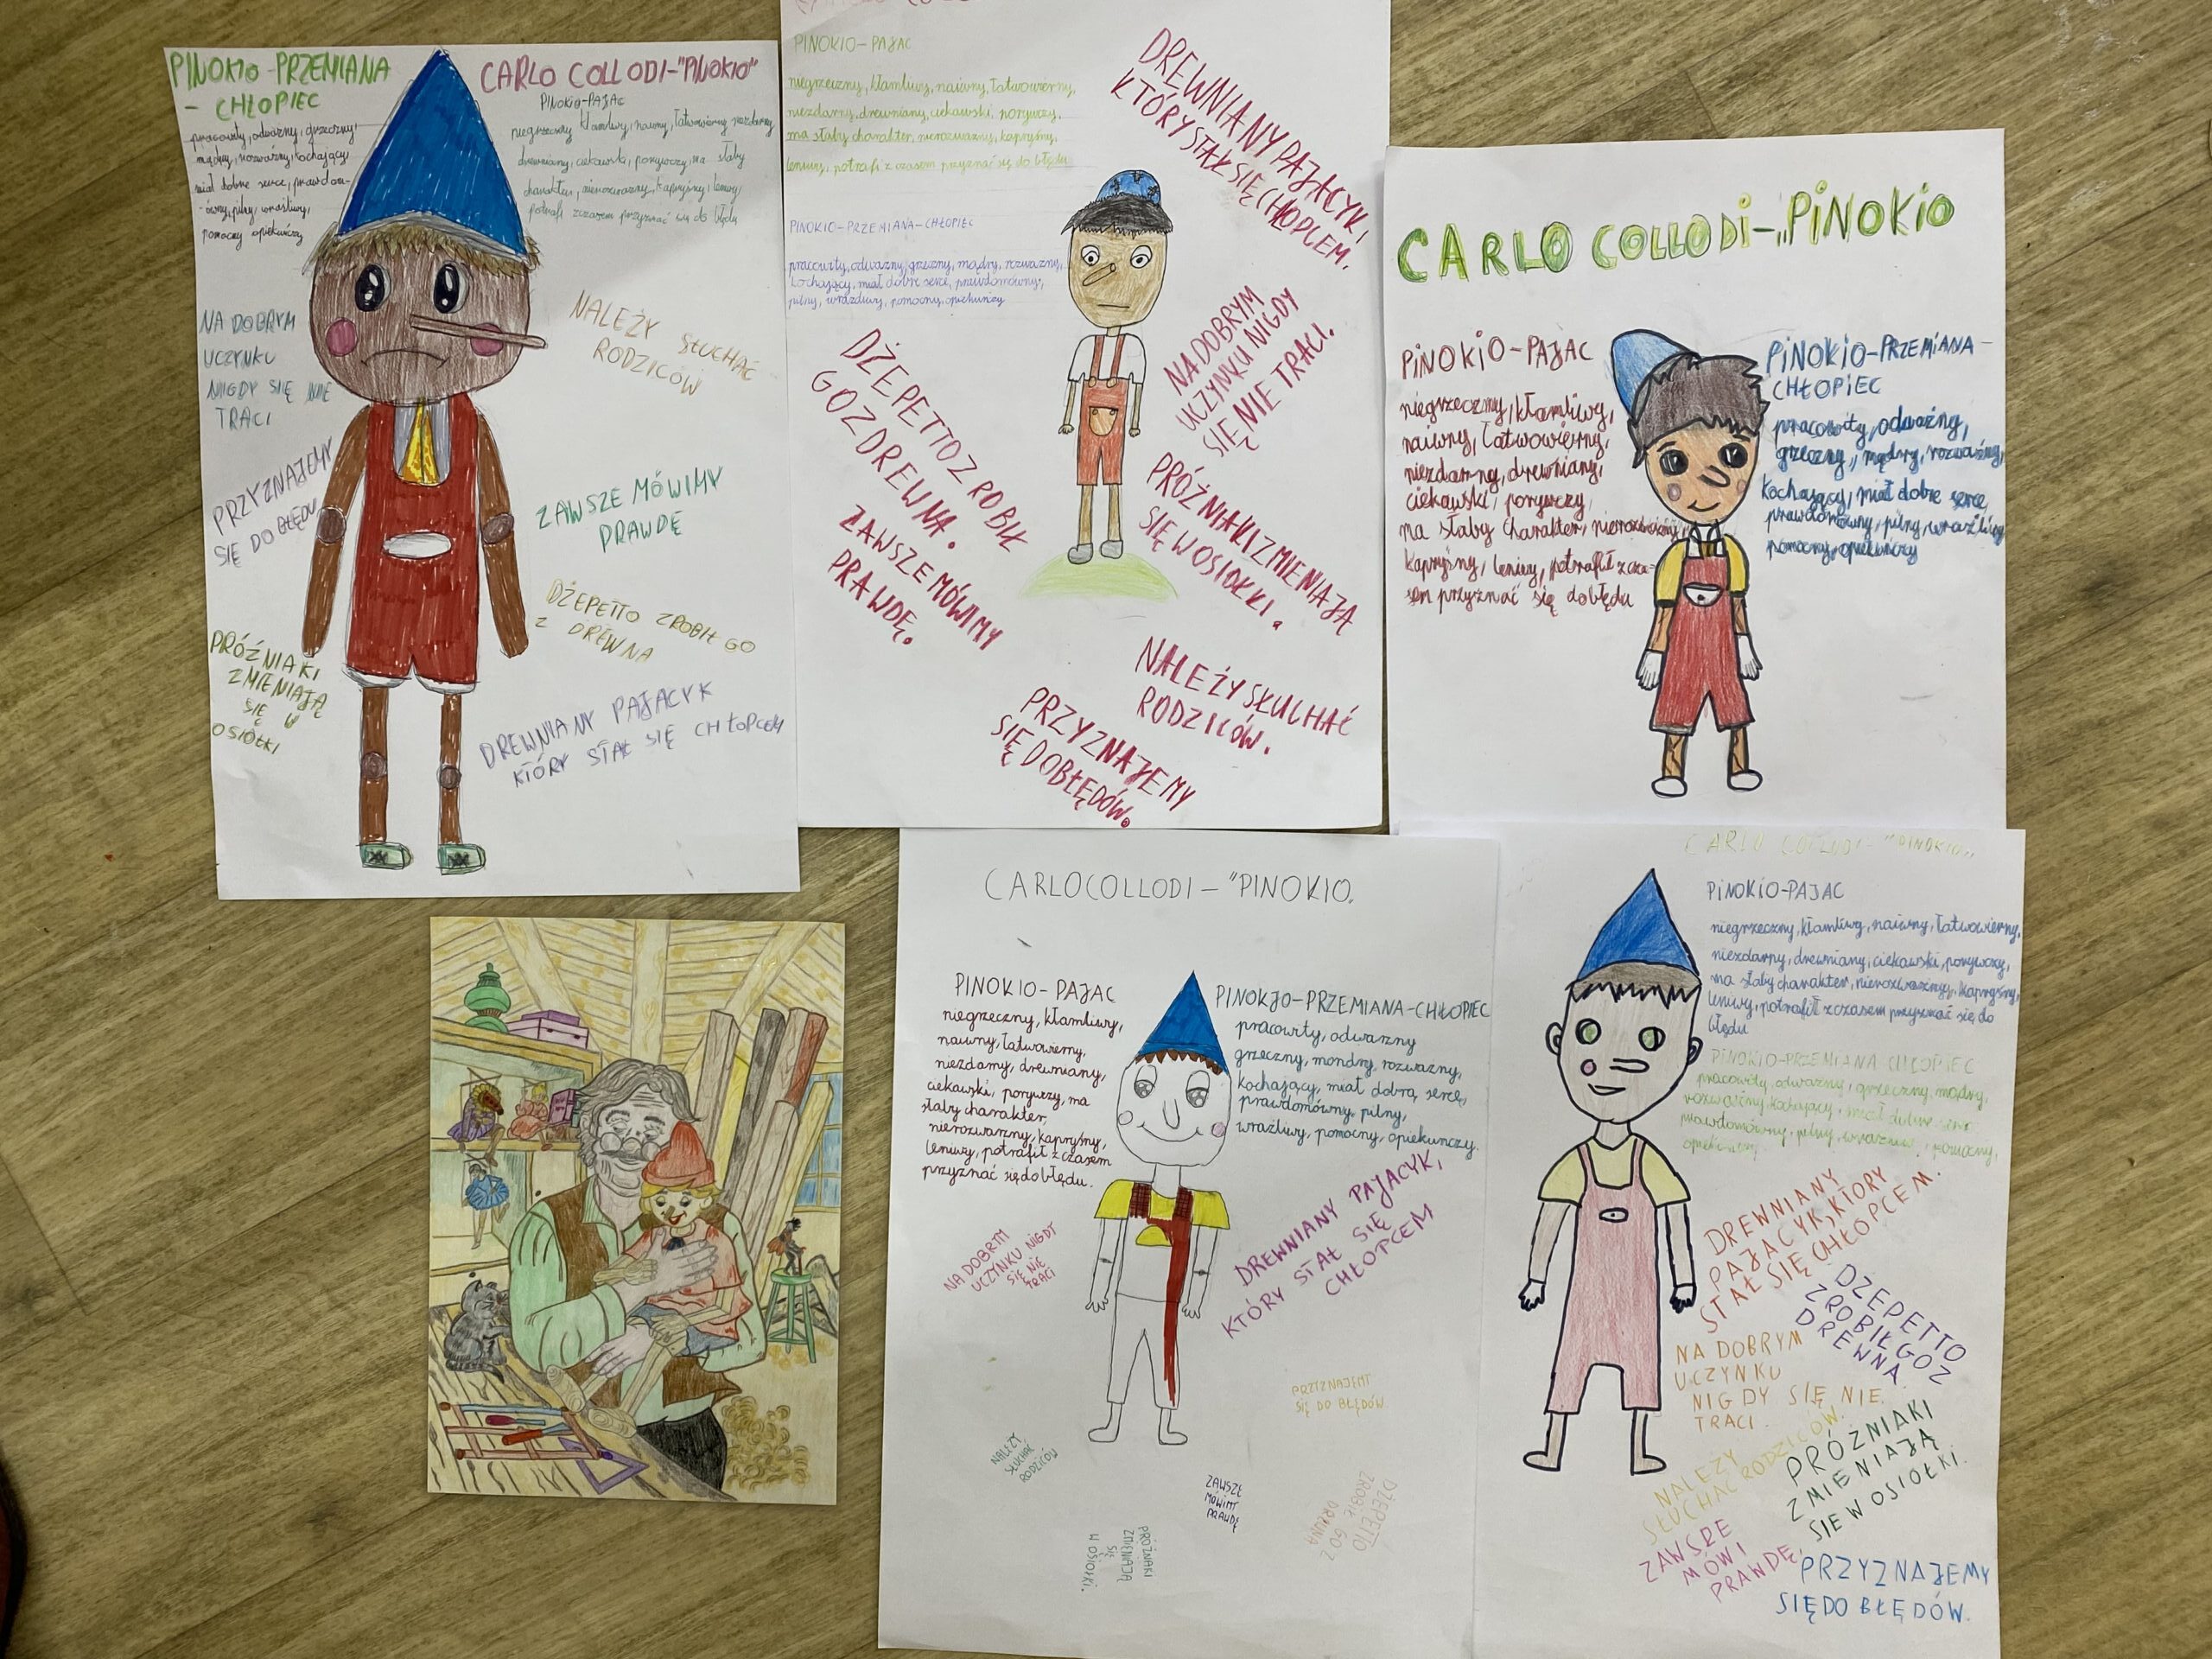 PINOKIO-PRZEMIANA
- CHŁOPIEC
pracowity, odważny, grzeczny,
mądry, rozważny, kochający
miał dobre serce, prawdom-
ówny, pilny, wrażliwy,
pomocny opiekuńczy
CARLO COLLODI-"PINOKIO"
PINOKIO-PAJAC
niegrzeczny kłamliwy, naiwny, łatwowierny niezdarny
drewniany, ciekawski, porywczy, ma słaby
charakter, nierozważny, kapryśny, leniwy,
potrafi z czasem przyznać się do błędu
NA DOBRYM
UCZYNKU
NIGDY SIĘ NIE
TRACI
NALEŻY SŁUCHAĆ
RODZICÓW
PRZYZNAJEMY
SIĘ DO BŁĘDU
ZAWSZE MÓWIMY
PRAWDĘ
DŻEPETTO ZROBIŁ GO
Z DREWNA
PRÓŻNIAKI
ZMIENIAJĄ
SIĘ W
OSIOŁKI
DREWNIANY PAJACYK
KTÓRY STAŁ SIĘ CHŁOPCEM
PINOKIO-PAJAC
niegrzeczny, kłamliwy, naiwny, łatwowierny,
niezdarny, drewniany, ciekawski, porywczy,
ma słaby charakter, nierozważny, kapryśny,
leniwy, potrafi z czasem przyznać się do błędu
PINOKIO-PRZEMIANA-CHŁOPIEC
pracowity, odważny, grzeczny, mądry, rozważny,
kochający, miał dobre serce, prawdomówny,
pilny, wrażliwy, pomocny, opiekuńczy
DREWNIANY PAJACYK,
KTÓRY STAŁ SIĘ CHŁOPCEM.
NA DOBRYM
UCZYNKU NIGDY
SIĘ NIE TRACI.
DŻEPETTO ZROBIŁ
GO Z DREWNA.
ZAWSZE MÓWIMY
PRAWDĘ.
PRÓŻNIAKI ZMIENIAJĄ
SIĘ W OSIOŁKI.
NALEŻY SŁUCHAĆ
RODZICÓW.
PRZYZNAJEMY
SIĘ DO BŁĘDÓW.
CARLO COLLODI-„PINOKIO
PINOKIO-PAJAC
niegrzeczny, kłamliwy,
naiwny, łatwowierny,
niezdarny, drewniany,
ciekawski, porywczy,
ma słaby charakter, nierozważny,
kapryśny, leniwy, potrafił z cza-
sem przyznać się do błędu
PINOKIO-PRZEMIANA-
CHŁOPIEC
pracowity, odważny,
grzeczny, mądry, rozważny,
kochający, miał dobre serce,
prawdomówny, pilny, wrażliwy
pomocny, opiekuńczy
CARLO COLLODI-"PINOKIO.
PINOKIO-PAJAC
niegrzeczny, kłamliwy,
naiwny, łatwowierny,
niezdarny, drewniany,
ciekawski, porywczy, ma
słaby charakter,
nierozważny, kapryśny,
leniwy, potrafił z czasem
przyznać się do błędu.
PINOKJO-PRZEMIANA-CHŁOPIEC
pracowity, odważny
grzeczny, mondry, rozważny,
kochający, miał dobrą serce,
prawdomówny, pilny,
wrażliwy, pomocny, opiekunczy.
NA DOBRYM
UCZYNKU NIGDY
SIĘ NIE
TRACI
DREWNIANY PAJACYK,
KTÓRY STAŁ SIĘ
CHŁOPCEM
PRZYZNAJEMY
SIĘ DO BŁĘDÓW.
NALEŻY
SŁUCHAĆ
RODZICÓW
ZAWSZE
MÓWIMY
PRAWDĘ
DŻEPETTO
ZROBIŁ GO Z
DREWNA
PRÓŻNIAKI
ZMIENIAJĄ
SIĘ
W OSIOŁKI.
CARLO COLLODI-"PINOKIO„
PINOKIO-PAJAC
niegrzeczny, kłamliwy, naiwny, łatwowierny,
niezdarny, drewniany, ciekawski, porywczy,
ma słaby charakter, nierozważny, kapryśny,
leniwy, potrafił z czasem przyznać się do
błędu
PINOKIO-PRZEMIANA CHŁOPIEC
pracowity, odważny, grzeczny, mądry,
rozważny, kochający, miał dobre serce
prawdomówny, pilny, wrażliwy, pomocny,
opiekuńczy
DREWNIANY
PAJACYK, KTÓRY
STAŁ SIĘ CHŁOPCEM.
DŻEPETTO
ZROBIŁ GO Z
DREWNA.
NA DOBRYM
UCZYNKU
NIGDY SIĘ NIE.
TRACI.
NALEŻY
SŁUCHAĆ RODZICÓW.
PRÓŻNIAKI
ZMIENIAJĄ
SIE W OSIOŁKI.
ZAWSZE
MÓWI
PRAWDĘ.
PRZYZNAJEMY
SIĘ DO BŁĘDÓW.